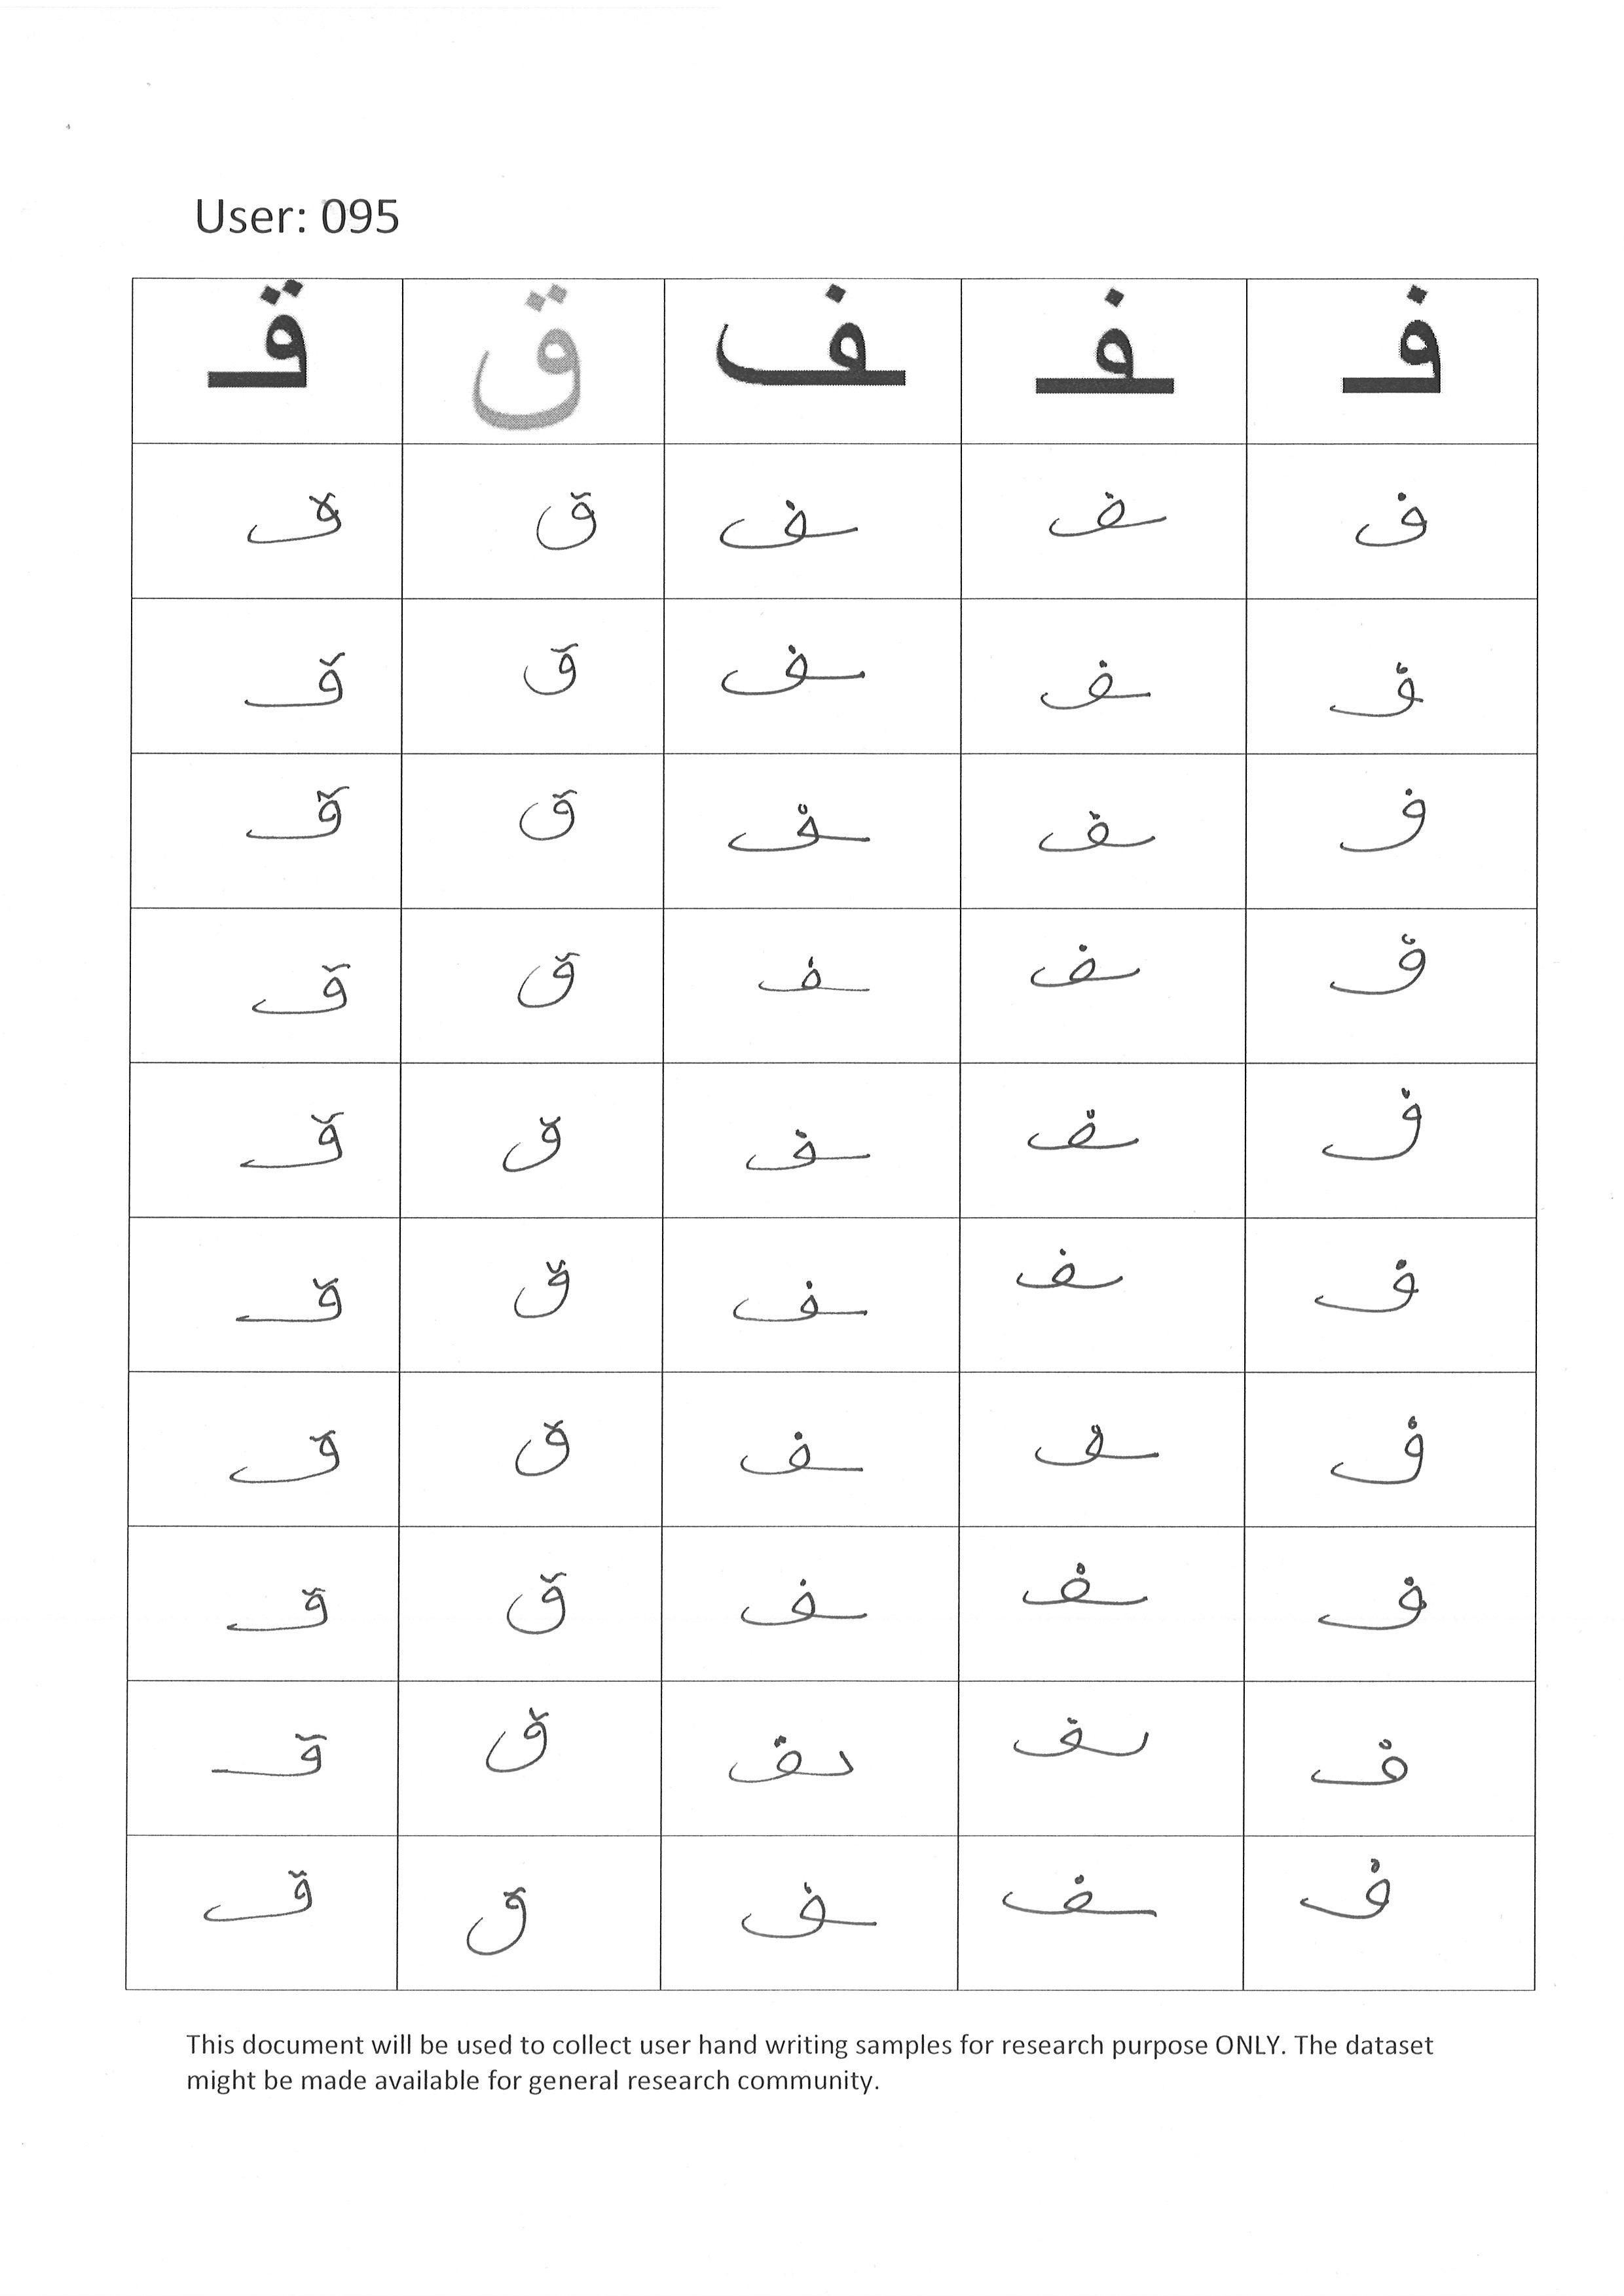 User: 095
فـ ـفـ ـف ق قـ
ف ـف ـف ق ق
ف ـف ـف ق ق
ف ـف ـف ق ق
ف ـف ـف ق ق
ف ـف ـف ق ق
ف ـف ـف ق ق
ف ـف ـف ق ق
ف ـف ـف ق ق
ف ـف ـف ق ق
ف ـف ـف ق ق
This document will be used to collect user hand writing samples for research purpose ONLY. The dataset
might be made available for general research community.